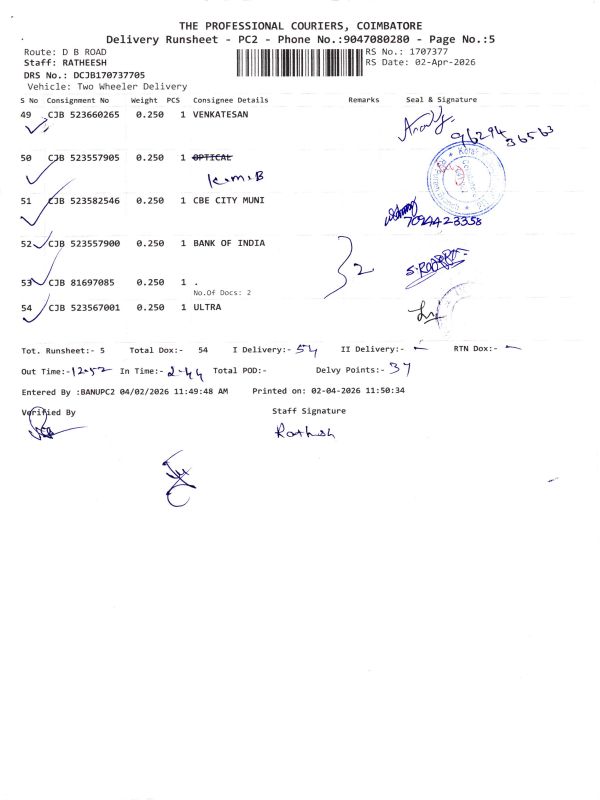 THE PROFESSIONAL COURIERS, COIMBATORE
Delivery Runsheet - PC2 - Phone No.:9047080280 - Page No.:5
Route: D B ROAD RS No.: 1707377
Staff: RATHEESH RS Date: 02-Apr-2026
DRS No.: DCJB170737705
Vehicle: Two Wheeler Delivery
S No Consignment No Weight PCS Consignee Details Remarks Seal & Signature
49 CJB 523660265 0.250 1 VENKATESAN
96294 36563
50 CJB 523557905 0.250 1 OPTICAL
K.M.B
51 CJB 523582546 0.250 1 CBE CITY MUNI
7094423358
52 CJB 523557900 0.250 1 BANK OF INDIA
2
53 CJB 81697085 0.250 1 .
No.Of Docs: 2
54 CJB 523567001 0.250 1 ULTRA
Tot. Runsheet:- 5 Total Dox:- 54 I Delivery:- 54 II Delivery:- - RTN Dox:- -
Out Time:-12-52 In Time:- 2-44 Total POD:- Delvy Points:- 37
Entered By :BANUPC2 04/02/2026 11:49:48 AM Printed on: 02-04-2026 11:50:34
Verified By Staff Signature
Rathesh